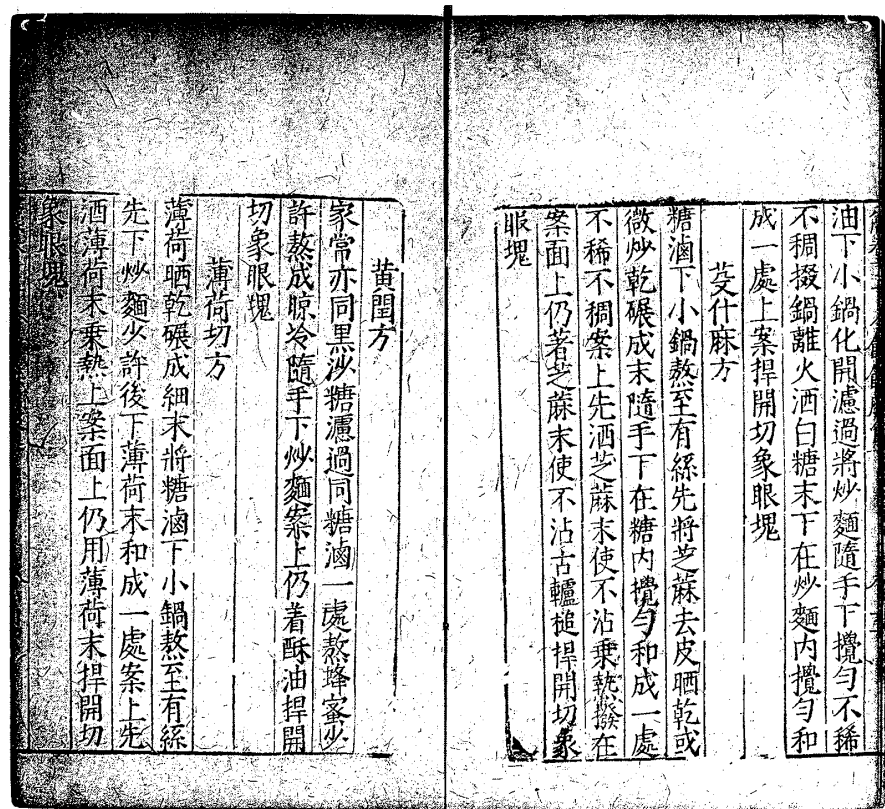 油下小鍋化開濾過將炒麵隨手下攪勻不稀
不稠掇鍋離火洒白糖末下在炒麵內攪勻和
成一處上案捍開切象眼塊
芟什麻方
糖滷下小鍋熬至有絲先將芝蔴去皮晒乾或
微炒乾碾成末隨手下在糖內攪勻和成一處
不稀不稠案上先洒芝蔴末使不沾乗熱撥在
案面上仍著芝蔴末使不沾古轤槌捍開切象
眼塊
黄閏方
家常亦同黑沙糖濾過同糖滷一處熬蜂蜜少
許熬成晾冷隨手下炒麵案上仍着酥油捍開
切象眼塊
薄荷切方
薄荷晒乾碾成細末將糖滷下小鍋熬至有絲
先下炒麵少許後下薄荷末和成一處案上先
洒薄荷末乗熱上案面上仍用薄荷末捍開切
象眼塊